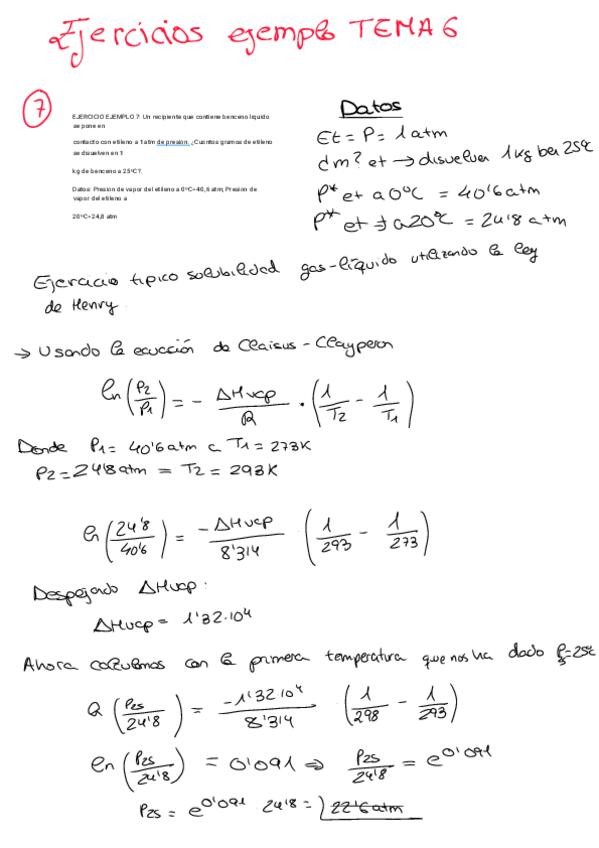 Ejercicios ejemplo TEMA 6
7
EJERCICIO EJEMPLO 7: Un recipiente que contiene benceno líquido
se pone en
contacto con etileno a 1atm de presión. ¿Cuantos gramos de etileno
se disuelven en 1
kg de benceno a 25ºC?.
Datos: Presion de vapor del etileno a 0ºC=40,6 atm; Presion de
vapor del etileno a
20ºC=24,8 atm
Datos
Et = P = 1 atm
dm? et → disuelven 1 kg ben 25ºC
P* et a 0ºC = 40'6 atm
P* et a 20ºC = 24'8 atm
Ejercicio típico solubilidad gas-líquido utilizando la ley
de Henry
→ Usando la ecucción de Claisus - Clayperon
ln (P2/P1) = - ΔHvap/R · (1/T2 - 1/T1)
Donde P1 = 40'6 atm a T1 = 273K
P2 = 24'8 atm = T2 = 293K
ln (24'8/40'6) = -ΔHvap/8'314 (1/293 - 1/273)
Despejando ΔHvap:
ΔHvap = 1'32·10⁴
Ahora calculamos con la primera temperatura que nos ha dado = 25ºC
(P25/24'8) = -1'32 10⁴/8'314 (1/298 - 1/293)
ln (P25/24'8) = 0'091 ⇒ P25/24'8 = e^0'091
P25 = e^0'091 24'8 = 22'6 atm